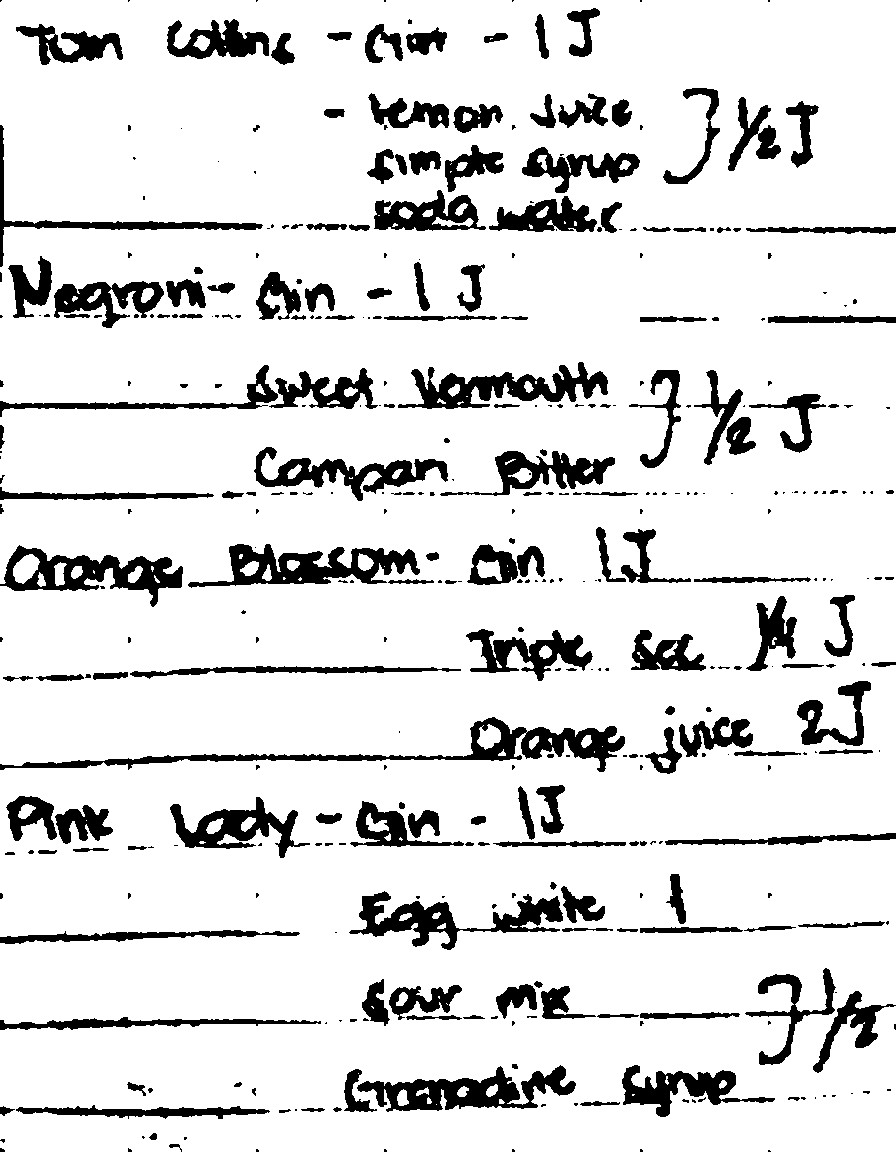 Tom Collins - Gin - 1 J
- Lemon Juice } 1/2 J
Simple Syrup
soda water
Negroni - Gin - 1 J
Sweet Vermouth } 1/2 J
Campari Bitter
Orange Blossom - Gin 1 J
Triple Sec 1/4 J
Orange juice 2 J
Pink Lady - Gin - 1 J
Egg white 1
Sour mix } 1/2
Grenadine Syrup